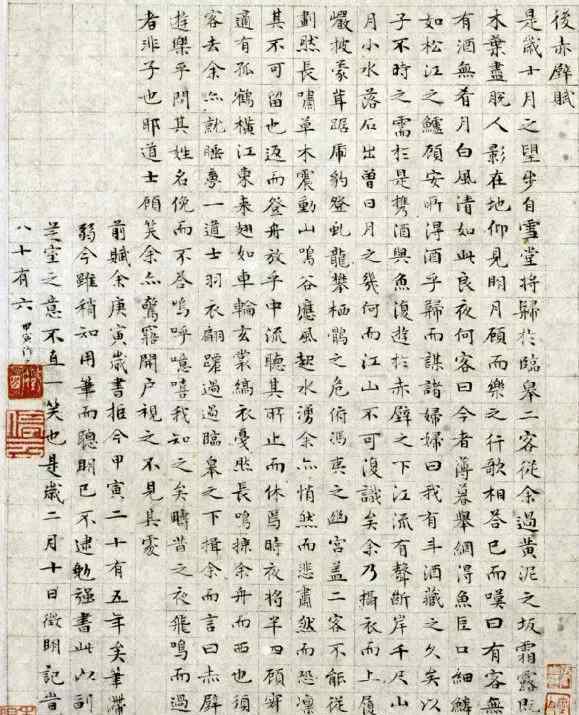 後赤壁賦
是歲十月之望步自雪堂將歸於臨皋二客從余過黃泥之坂霜露既
木葉盡脫人影在地仰見明月顧而樂之行歌相答已而嘆曰有客無
有酒無肴月白風清如此良夜何客曰今者薄暮舉網得魚巨口細鱗
如松江之鱸顧安所得酒乎歸而謀諸婦婦曰我有斗酒藏之久矣以
子不時之需於是携酒與魚復遊於赤壁之下江流有聲斷岸千尺山
月小水落石出曾日月之幾何而江山不可復識矣余乃攝衣而上履
巉披蒙茸踞虎豹登虬龍攀栖鶻之危俯馮夷之幽宮蓋二客不能從
劃然長嘯草木震動山鳴谷應風起水湧余亦悄然而悲肅然而恐凜
其不可留也返而登舟放乎中流聽其所止而休焉時夜將半四顧寂
適有孤鶴橫江東來翅如車輪玄裳縞衣戛然長鳴掠余舟而西也須
客去余亦就睡夢一道士羽衣翩躚過過臨皋之下揖余而言曰赤壁
遊樂乎問其姓名俛而不答嗚呼噫嘻我知之矣疇昔之夜飛鳴而過
者非子也耶道士顧笑余亦驚寤開戶視之不見其處
前賦余庚寅歲書拒今甲寅二十有五年矣筆滯
弱今雖稍知用筆而聰明已不逮勉強書此以副
芝室之意不直一笑也是歲二月十日徵明記旹
八十有六